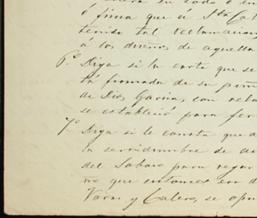 ó finca que á Sta Cat
tenido tal reclamacion
á los dueños de aquella
6º Diga si la carta que se
tá firmada de su puño
de Dios Garcia, con rela
se estableció para fer
7º Diga si le consta que a
la servidumbre de a
del Sabaco para regar
no que entonces era d
Varas y Calero, se opu